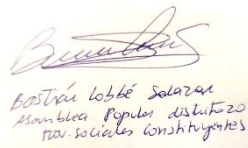 Bastián Lobbé Salazar
Asamblea Popular distrito 20
Mov. sociales Constituyentes